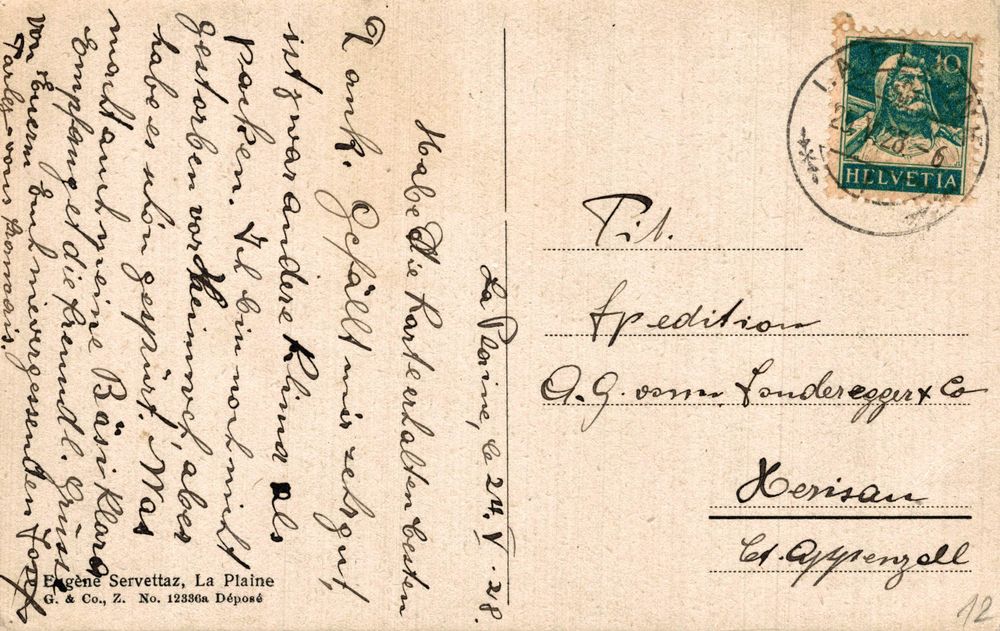 La Plaine, le 24. V. 28.
Habe Die Karte erhalten besten
Dank. Gefällt mir sehr gut,
ist zwar andere Klima als
parken. Ich bin noch nicht
gestorben vor Heimweh, aber
habe es schon gespürt. Was
macht auch meine Bäsi Klara
Empfanget die freundl. Grüsse
von Euerm Euch nievergessenden Josef
HELVETIA
10
Tit.
Spedition
A.G. vorm. Sonderegger & Co
Herisau
Ct. Appenzell
Eugène Servettaz, La Plaine
G. & Co., Z. No. 12336a Déposé
12